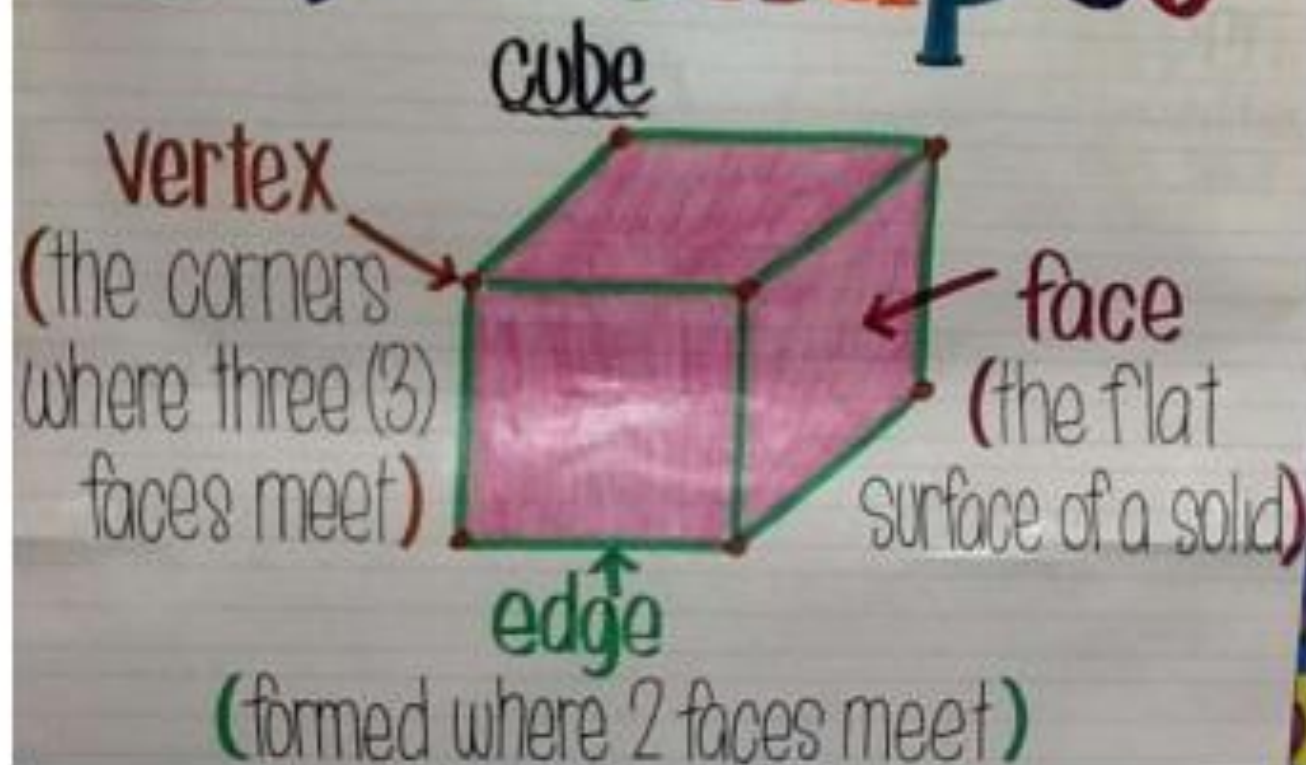 cube
vertex
(the corners
where three (3)
faces meet)
face
(the flat
surface of a solid)
edge
(formed where 2 faces meet)